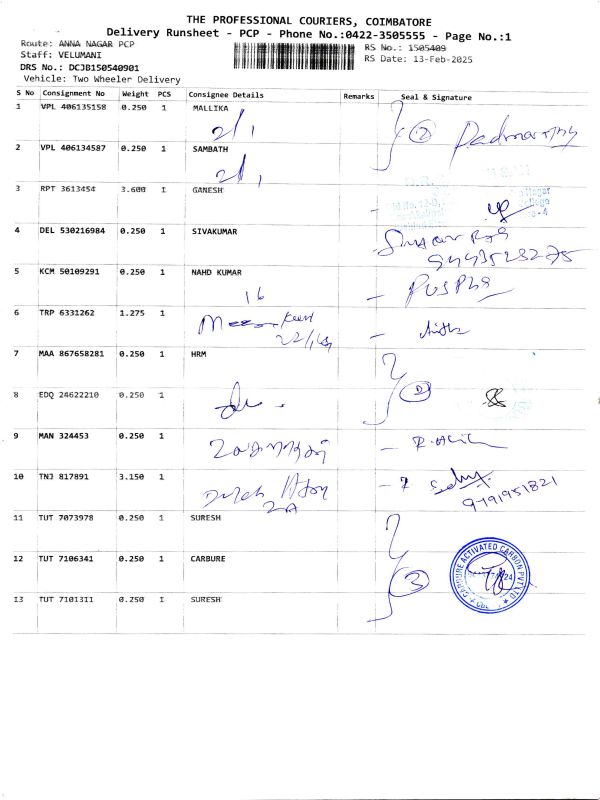 THE PROFESSIONAL COURIERS, COIMBATORE
Delivery Runsheet - PCP - Phone No.:0422-3505555 - Page No.:1
Route: ANNA NAGAR PCP
RS No.: 1505409
Staff: VELUMANI
RS Date: 13-Feb-2025
DRS No.: DCJB150540901
Vehicle: Two Wheeler Delivery
S No Consignment No Weight PCS Consignee Details Remarks Seal & Signature
1 VPL 406135158 0.250 1 MALLIKA
2/1
2
2 VPL 406134587 0.250 1 SAMBATH
2/1
3 RPT 3613454 3.600 1 GANESH
4 DEL 530216984 0.250 1 SIVAKUMAR
5 KCM 50109291 0.250 1 NAHD KUMAR
16
PUSPha
6 TRP 6331262 1.275 1
7 MAA 867658281 0.250 1 HRM
2
8 EDQ 24622210 0.250 1
9 MAN 324453 0.250 1
10 TNJ 817891 3.150 1
2A
9791951821
11 TUT 7073978 0.250 1 SURESH
12 TUT 7106341 0.250 1 CARBURE
3
CARBURE ACTIVATED CARBON PVT LTD
13 TUT 7101311 0.250 1 SURESH